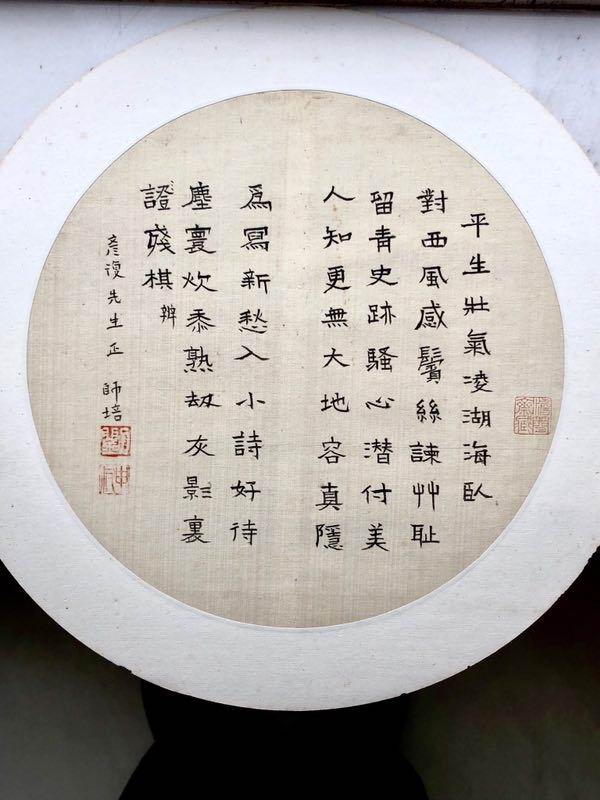 平生壯氣淩湖海臥
對西風感鬢絲諫艸耻
留青史跡騷心潛付美
人知更無大地容真隱
爲寫新愁入小詩好待
塵寰炊黍熟劫灰影裏
證殘棋辨
彥復先生正 師培